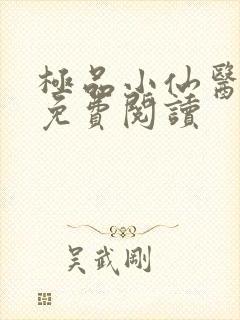 極品小仙醫
免費閱讀
吴武剛